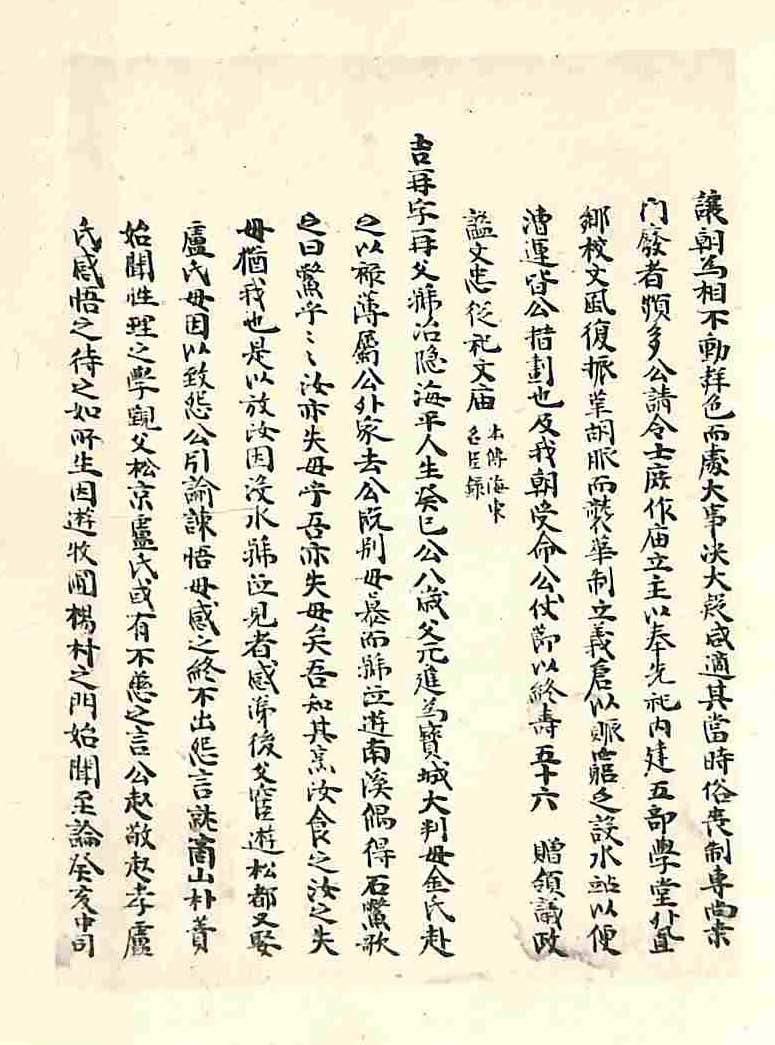 讓朝爲相不動聲色而處大事決大疑咸適其當時俗喪制專尚桑
門廢者頗多公請令士庶作庙立主以奉先祀內建五部學堂外置
鄕校文風復振革胡服而襲華制立義倉以賑窮乏設水站以便
漕運皆公措劃也及我朝受命公伏節以終壽五十六 贈領議政
謚文忠從祀文庙 本傳海東
名臣錄
吉再字再父號冶隐海平人生癸巳公八歲父元進爲寶城大判母金氏赴
之以祿薄屬公外家去公旣別母慕而號泣遊南溪偶得石鱉歌
之曰鱉乎〻汝亦失母乎吾亦失母矣吾知其烹汝食之汝之失
母猶我也是以放汝因沒水號泣見者感涕後父宦遊松都又娶
盧氏母因以致怨公引論諫悟母感之終不出怨言就商山朴賁
始聞性理之學覲父松京盧氏或有不慈之言公起敬起孝盧
氏感悟之待之如所生因遊牧圃楊村之門始聞至論癸亥中司